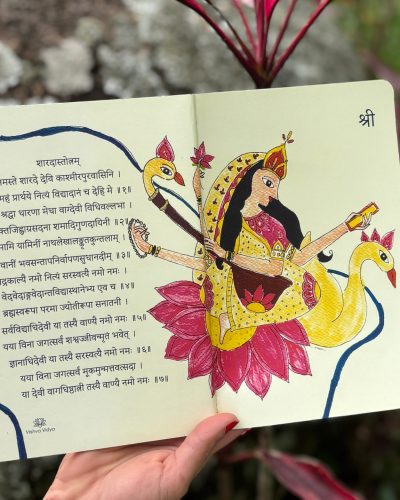 शारदास्तोत्रम्
नमस्ते शारदे देवि काश्मीरपुरवासिनि ।
महं प्रार्थये नित्यं विद्यादानं च देहि मे ॥१॥
श्रद्धा धारणा मेधा वाग्देवी विधिवल्लभा ।
क्तजिह्वाग्रसदना शमादिगुणदायिनी ॥२॥
मामि यामिनीं नाथलेखालङ्कृतकुन्तलाम् ।
वानीं भवसन्तापनिर्वापणसुधानदीम् ॥३॥
द्रकाल्यै नमो नित्यं सरस्वत्यै नमो नमः ।
वेदवेदाङ्गवेदान्तविद्यास्थानेभ्य एव च ॥४॥
ब्रह्मस्वरूपा परमा ज्योतीरूपा सनातनी ।
सर्वविद्याधिदेवी या तस्यै वाण्यै नमो नमः ॥५॥
यया विना जगत्सर्वं शश्वज्जीवन्मृतं भवेत् ।
ज्ञानाधिदेवी या तस्यै सरस्वत्यै नमो नमः ॥६॥
यया विना जगत्सर्वं मूकमुन्मत्तवत्सदा ।
या देवी वागधिष्ठात्री तस्यै वाण्यै नमो नमः ॥७॥
Vishva Vidya
श्री